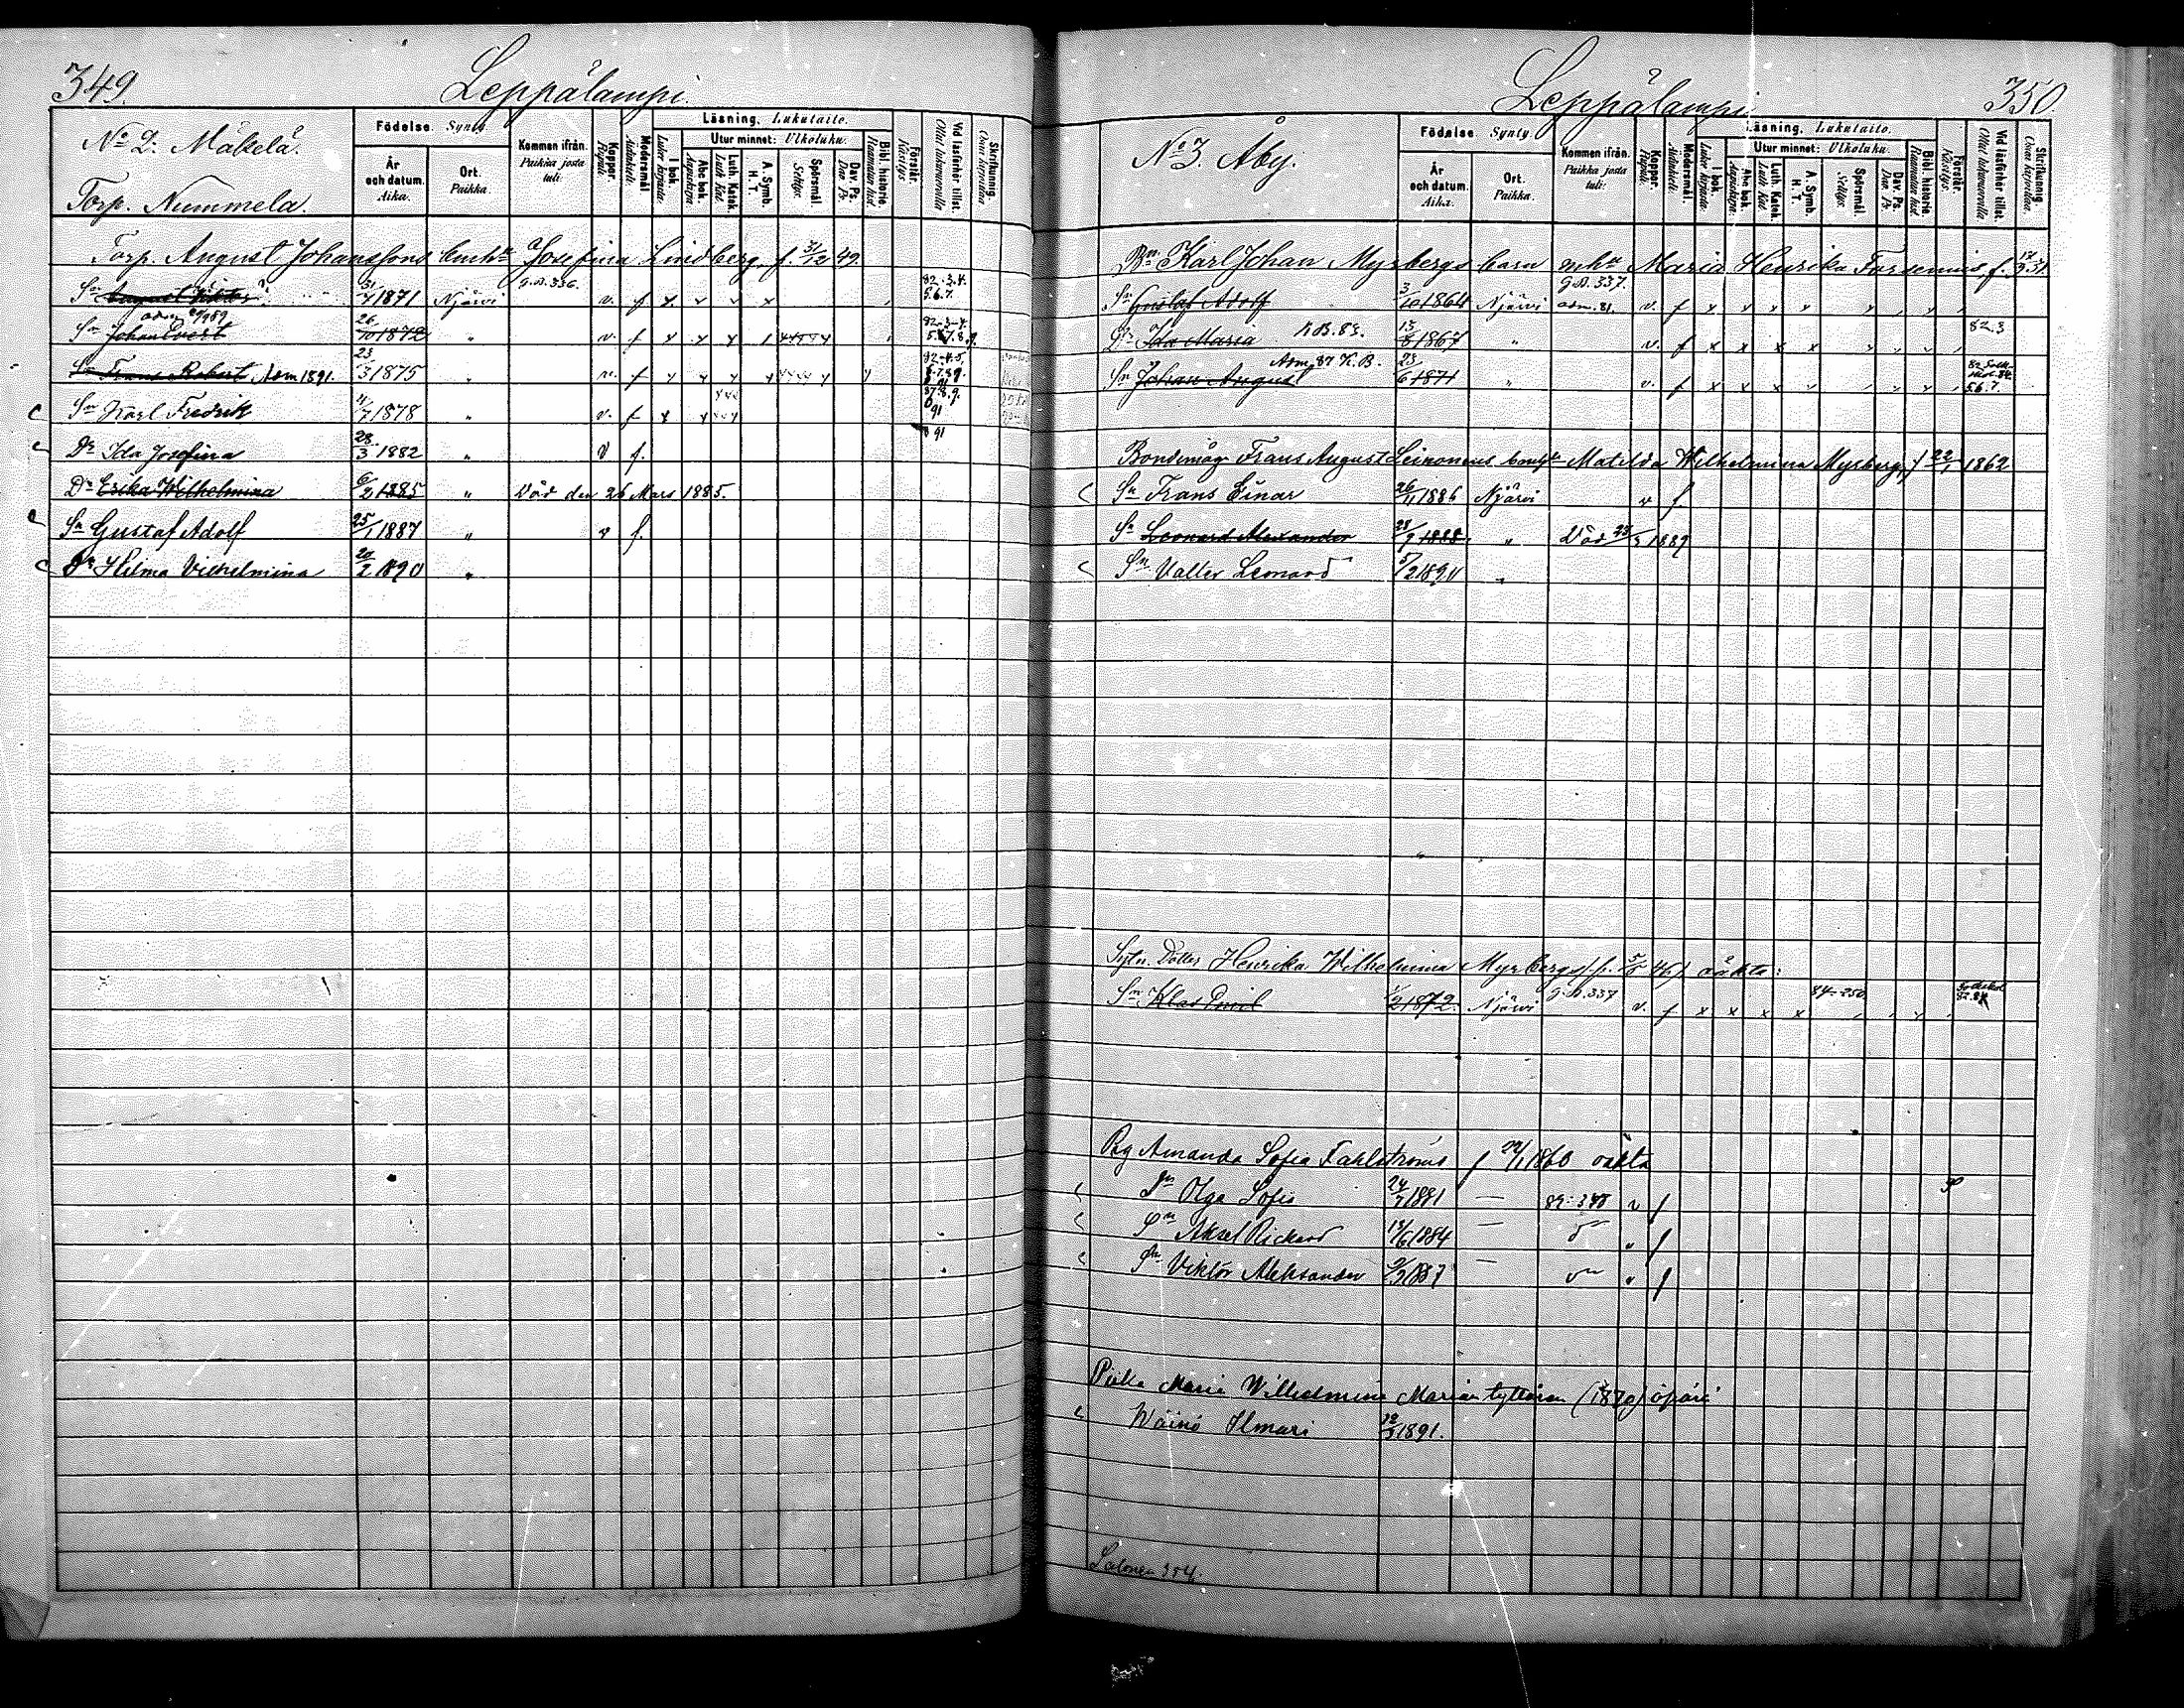 349.
Leppälampi.
No 2. Mäkelä.
Torp. Nummela.
Födelse. Synty.
År och datum. Aika.
Ort. Paikka.
Kommen ifrån. Paikka josta tuli:
Koppor. Rupuli.
Modersmål. Äidinkieli.
Läsning. Lukutaito.
I bok. Lukee kirjasta.
Utur minnet: Ulkoluku.
Abc bok. Aapiskirja.
Luth. Katek. Luth. Kat.
A. Symb. H. T.
Spörsmål. Selitys.
Dav. Ps. Dav. Ps.
Bibl. historie. Raamatun hist.
Förstår. Käsitys.
Vid läsförhör tillst. Ollut lukuvuorolla
Skriftkunnig. Osaa kirjoittaa.
Torp. August Johanssons Josefina Lindberg f. 31/12 49.
Sn August Viktor 31/7 1871 Njärvi G.B. 336. v. f x 82.3.4. 5.6.7.
Sn Johan Evert 26/10 1872 " v. f 82-3-4.
Sn Frans Robert Adm 1891. 23/3 1875 " v. f 82-4-5.
Sn Karl Fredrik 11/7 1878 " v. f 91
Dr Ida Josefina 28/3 1882 " v f. 91
Dr Erika Wilhelmina 6/2 1885 " Död den 26 Mars 1885.
Sn Gustaf Adolf 25/1 1887 " v f.
Dr Hilma Vilhelmina 20/2 1890 "
Leppälampi
350.
No 3. Åby.
Födelse. Synty.
År och datum. Aika.
Ort. Paikka.
Kommen ifrån. Paikka josta tuli:
Koppor. Rupuli.
Modersmål. Äidinkieli.
Läsning. Lukutaito.
I bok. Lukee kirjasta.
Utur minnet: Ulkoluku.
Abc bok. Aapiskirja.
Luth. Katek. Luth. Kat.
A. Symb. H. T.
Spörsmål. Selitys.
Dav. Ps. Dav. Ps.
Bibl. historie. Raamatun hist.
Förstår. Käsitys.
Vid läsförhör tillst. Ollut lukuvuorolla
Skriftkunnig. Osaa kirjoittaa.
Bn Karl Johan Myrbergs barn mhu Maria Henrika f. 31
Sn Gustaf Adolf 3/10 1864 Njärvi G.B. 337. adm. 81. v. f x
Dr Ida Maria K.B. 83. 13/8 1867 " v. f x x x x 82.3
Sn Johan August Adm 87 K.B. 23/6 1871 " v. f x x x 5.6.7.
Bondemåg Frans August Leinonens Matilda Wilhelmina Myrberg f 22/1 1862
Sn Frans Einar 26/11 1886 Njärvi v f.
Sn Leonard Alexander 28/9 1888 " Död 23/3 1889
Sn Valter Leonard 5/2 1890 "
Sytn. Dotter Henrika Wilhelmina Myrbergs f. 5/5 46 oäkta:
Sn Klas Emil 1/2 1872. Njärvi G.B. 337 v. f x x x x 84-250.
Pig Amanda Sofia Fahlströms f 22/1 1860 oäkta
Dr Olga Sofia 24/7 1881 — 89-348 v f
Sn Aksel Rickard 13/6 1884 — " f
Sn Viktor Aleksander 9/9 1887 — " f
Piika Maria Wilhelmina Marian tyttären (1870) äpärä
Wäinö Ilmari 1891.
Salonen 304.